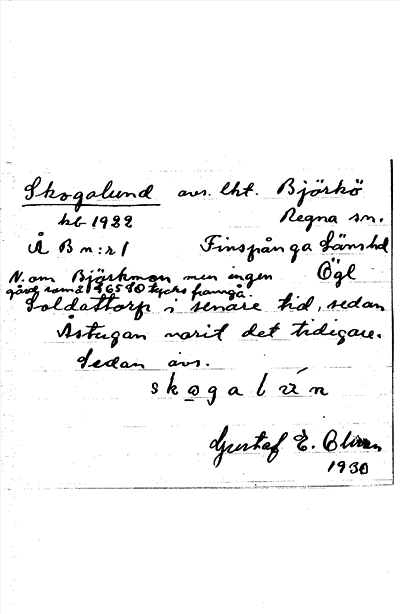 Skogalund avs. lht. Björkö
kb 1922 Regna sn.
Å B n:r 1 Finspånga Länshd
N. om Björkmon men ingen Ögl
gård, som å tycks framgå.
Soldattorp i senare tid, sedan
Åstugan varit det tidigare.
Sedan avs.
skogalún
Gustaf E.
1930